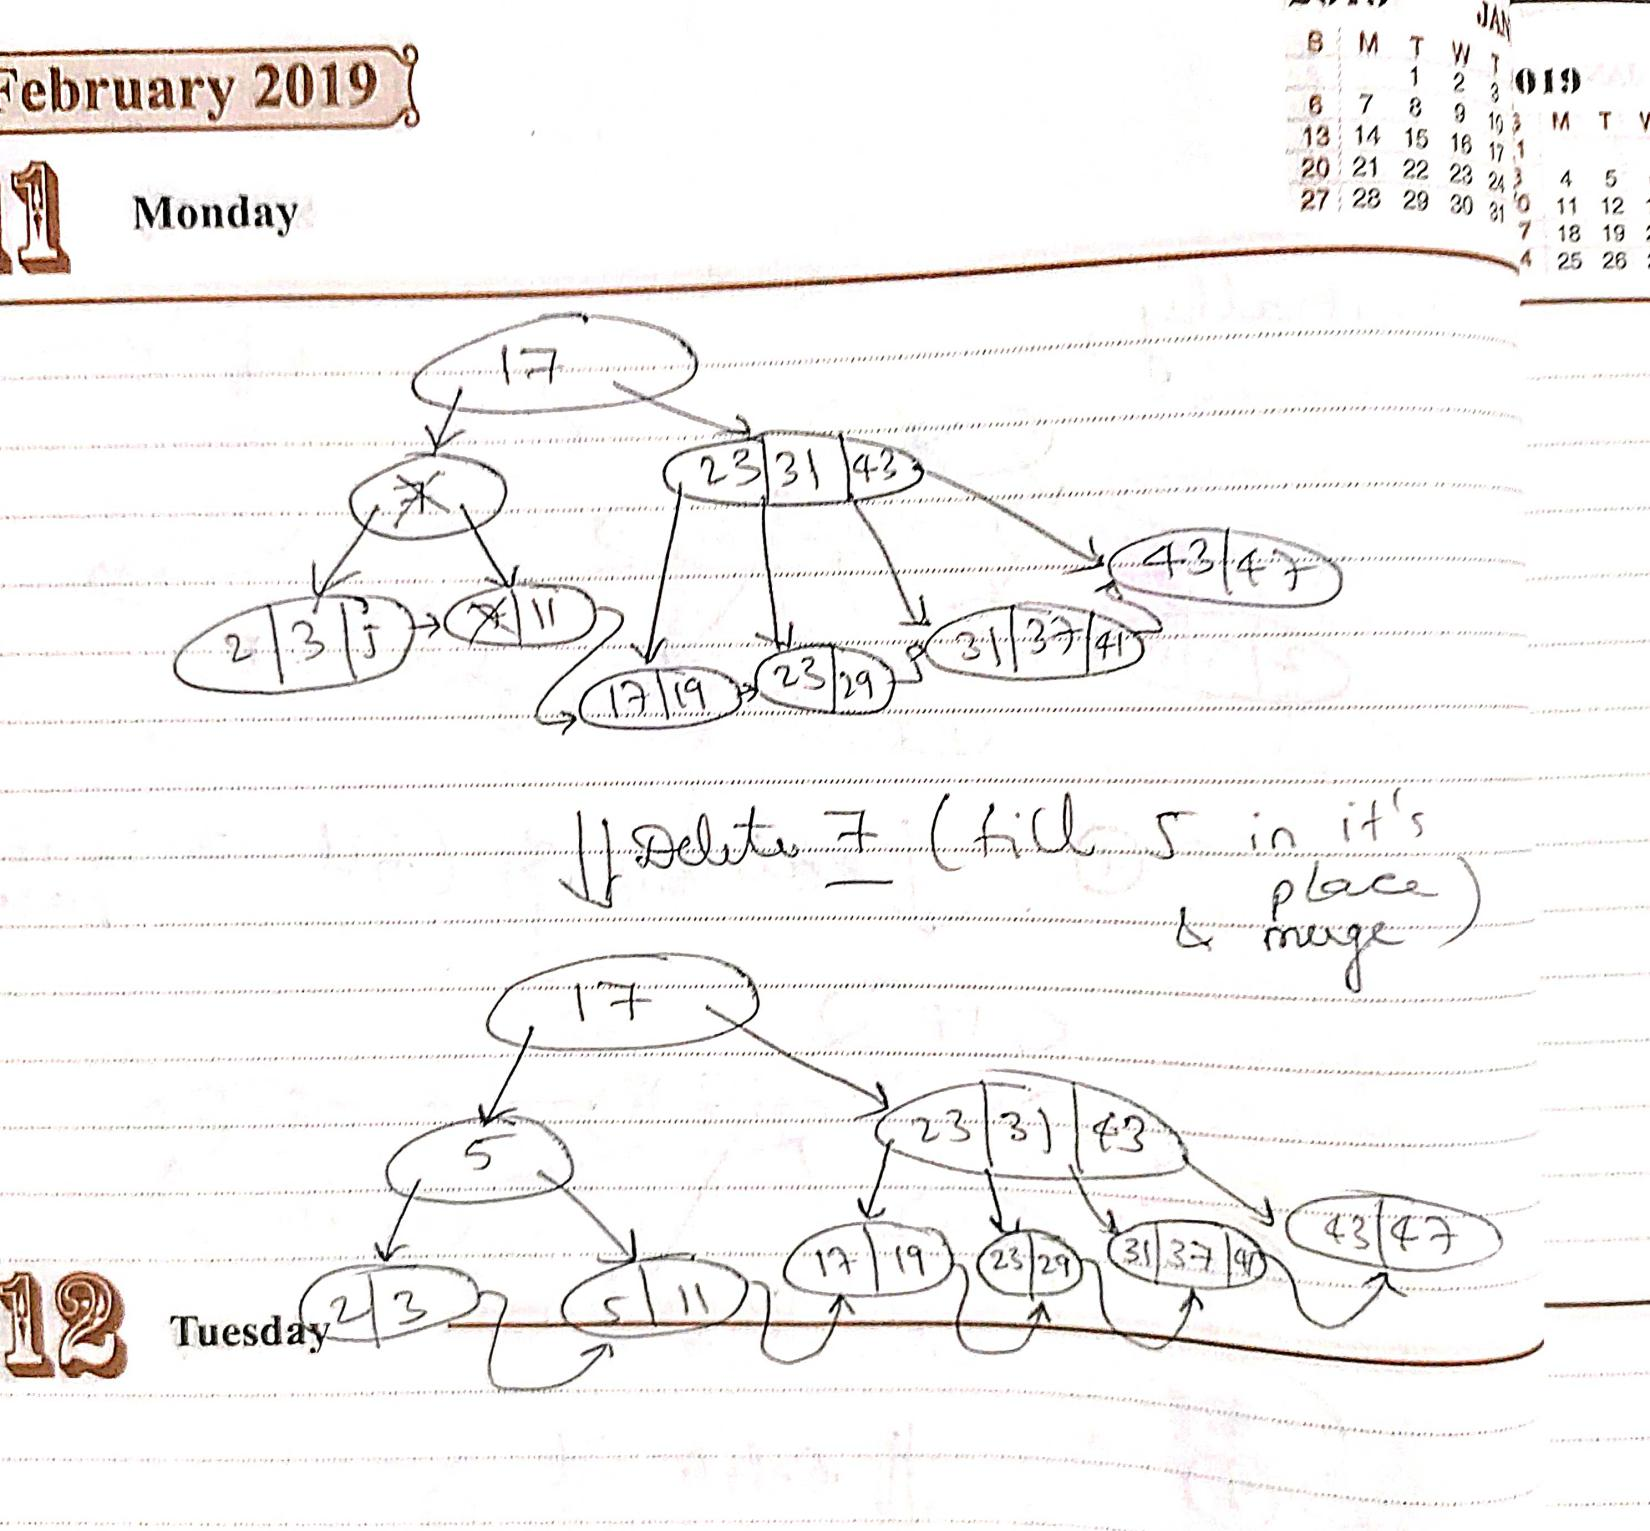 February 2019
11 Monday
JAN
S M T W T
1 2 3
6 7 8 9 10
13 14 15 16 17
20 21 22 23 24
27 28 29 30 31
019
M T
4 5
11 12
18 19
25 26
17
7
23 31 43
43 47
2 3 5
7 11
31 37 41
17 19
23 29
Delete 7 (fill 5 in it's
place
& merge)
17
5
23 31 43
43 47
17 19
23 29
31 37 41
2 3
5 11
12 Tuesday